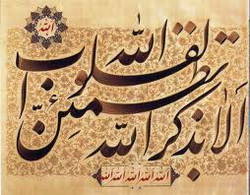 الله
الله
الا بذكر الله تطمئن القلوب
الله الله الله الله الله